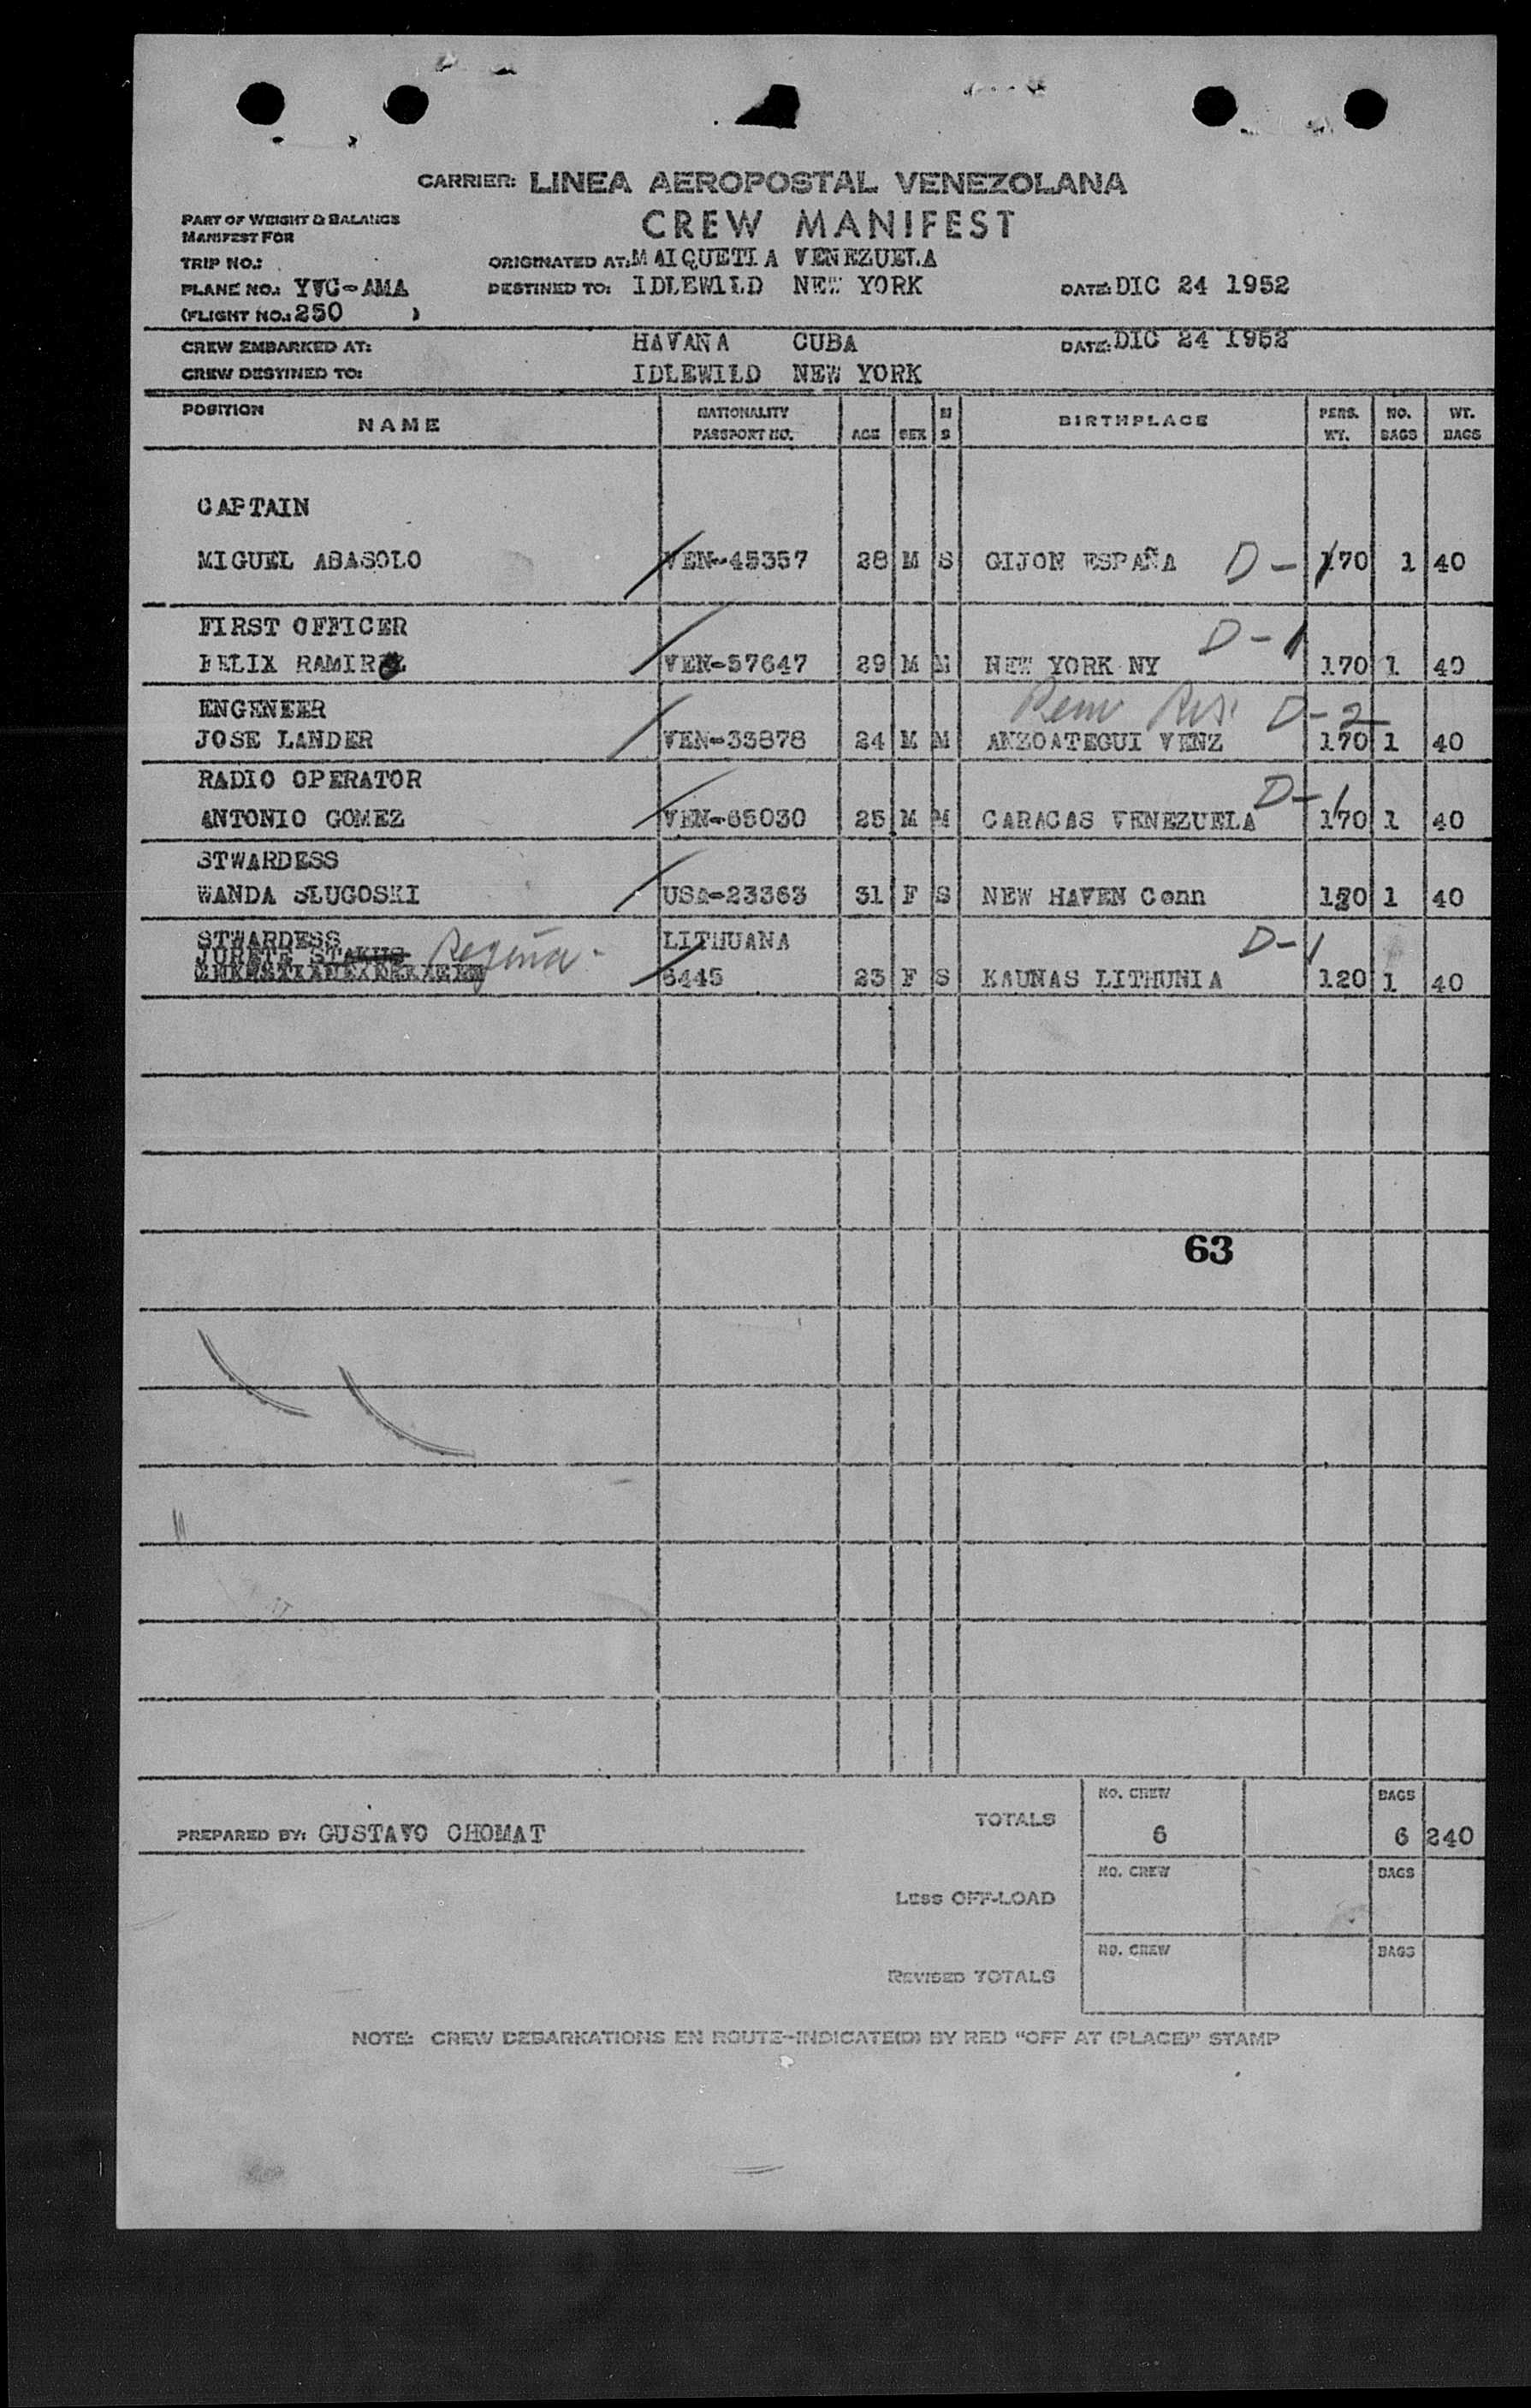 CARRIER: LINEA AEROPOSTAL VENEZOLANA
PART OF WEIGHT & BALANCE
MANIFEST FOR
CREW MANIFEST
TRIP NO.: ORIGINATED AT: MAIQUETIA VENEZUELA
PLANE NO.: YVC-AMA DESTINED TO: IDLEWILD NEW YORK DATE: DIC 24 1952
(FLIGHT NO.: 250 )
CREW EMBARKED AT: HAVANA CUBA DATE: DIC 24 1952
CREW DESTINED TO: IDLEWILD NEW YORK
POSITION NAME NATIONALITY PASSPORT NO. AGE SEX M S BIRTHPLACE PERS. WT. NO. BAGS WT. BAGS
CAPTAIN
MIGUEL ABASOLO VEN-45357 28 M S GIJON ESPAÑA D-1 170 1 40
FIRST OFFICER D-1
FELIX RAMIREZ VEN-57647 29 M M NEW YORK NY 170 1 40
ENGENEER D-2
JOSE LANDER VEN-33878 24 M M ANZOATEGUI VENZ 170 1 40
RADIO OPERATOR D-1
ANTONIO GOMEZ VEN-65030 25 M M CARACAS VENEZUELA 170 1 40
STWARDESS
WANDA SLUGOSKI USA-23363 31 F S NEW HAVEN Conn 120 1 40
STWARDESS LITHUANA D-1
JURETE STAKUS Regina
6445 23 F S KAUNAS LITHUNIA 120 1 40
63
PREPARED BY: GUSTAVO CHOMAT
TOTALS NO. CREW 6 BAGS 6 240
LESS OFF-LOAD NO. CREW BAGS
REVISED TOTALS NO. CREW BAGS
NOTE: CREW DEBARKATIONS EN ROUTE-INDICATE(D) BY RED "OFF AT (PLACE)" STAMP